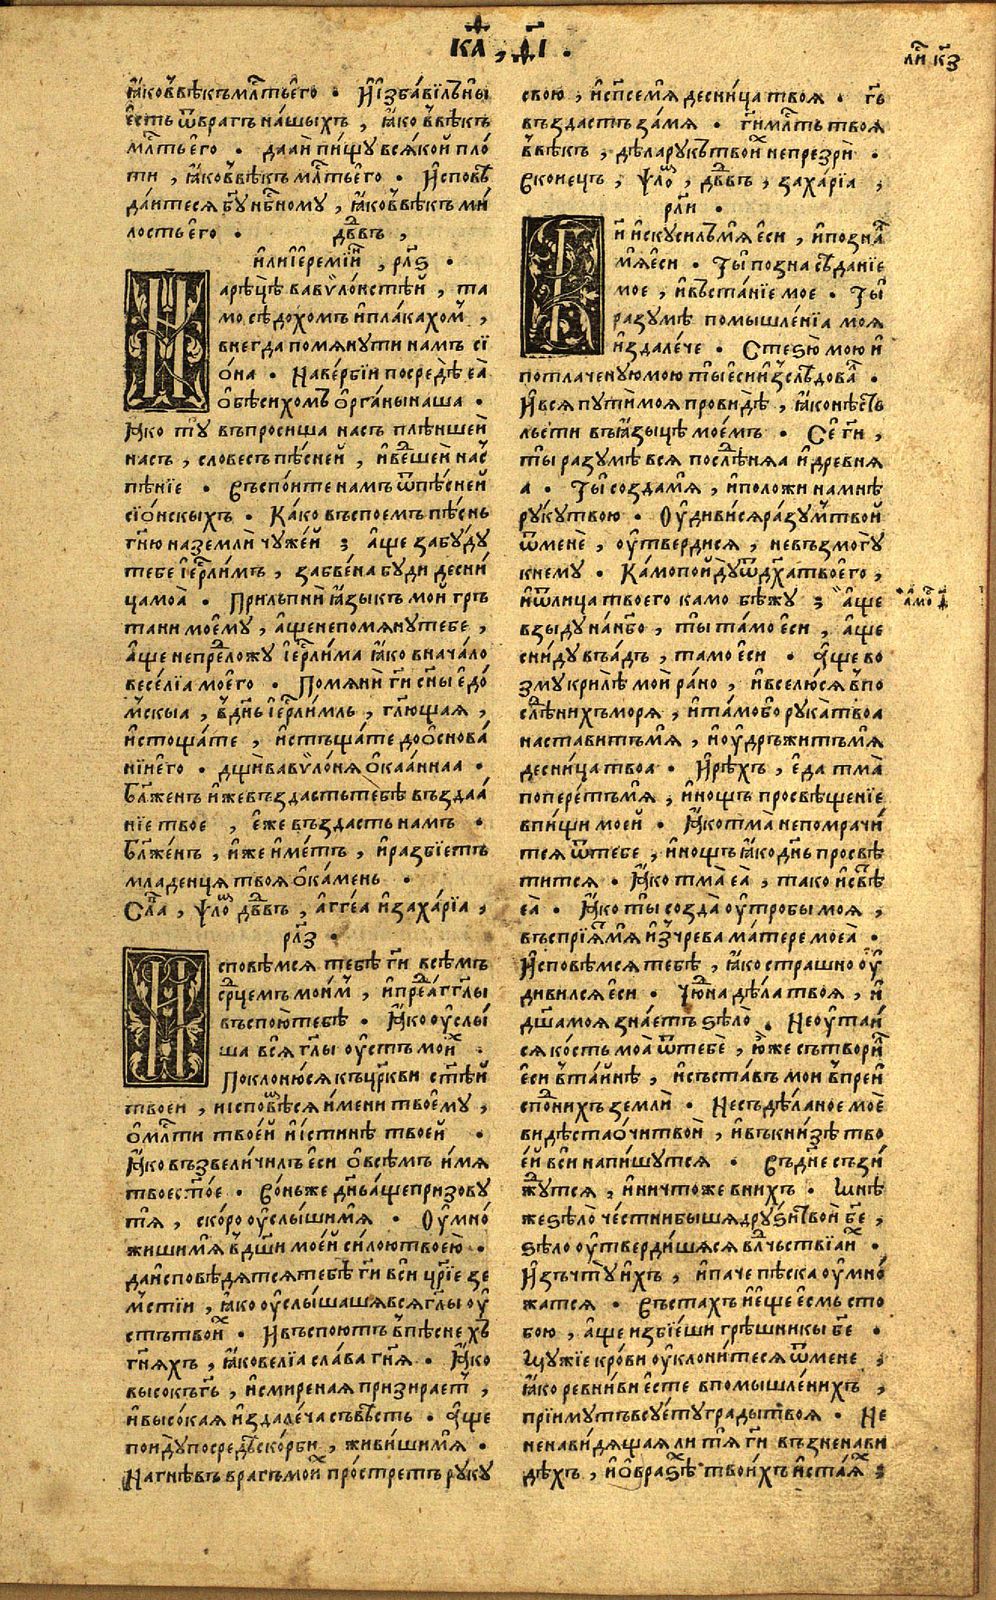 КА҃, Ѱ҃І.
ли́ к҃з
ꙗ҆́коввѣкъмл҃тьє҆го . И҆и҆збавилъны
є҆сть ѿврагъ на́шыхъ , ꙗ҆́ко ввѣкъ
мл҃тьє҆го . даа́й пи́щу всѧ́кой пло́
ти , ꙗ҆́коввѣкъ мл҃тьє҆го . И҆сповѣ
да́итесѧ бг҃у нбⷭ҇ному , ꙗ҆́коввѣкъ ми́
лостьє҆го . дв҃въ ,
и҆лиі҆єремі́и , рл҃ѕ .
На рѣцѣ вавѷло́нстѣй , та
мо сѣдохомъ и҆пла́кахомъ ,
внегда помѧнути намъ сї
ѻ́на . Наве́рбїи посредѣ єѧ̀
ѻ҆бѣсихомъ ѻ҆рга́ны наша .
Ꙗ҆́ко ту въпросиша насъ плѣншеи
насъ , словесъ пѣ́сней , и҆ве́дшей насъ
пѣ́нїе . Въспо́ите намъ ѿпѣ́сней
сїѻ́нскыхъ . Ка́ко въспоемъ пѣ́снь
гн҃ю на землѝ чуже́й ; а҆ще забу́ду
тебе і҆ерⷭ҇ли́мъ , забве́на буди десни́
цамоа̀ . Прильпнѝ ꙗ҆зы́къ мой гръ
тани мое́му , а҆́щенепомѧну тебе ,
а҆́ще непре́ложу і҆ерⷭ҇ли́ма ꙗ҆́ко внача́ло
весе́лїа мое́го . Помѧнѝ гн҃и сн҃ы є҆до́
мскыа , вдн҃ь і҆ерⷭ҇ли́мль , гл҃ющаѧ ,
и҆стоща́те , и҆стъща́те доѻ҆снова́
нїи́его . дщи̑вавѷло́нѧ ѻ҆каа́ннаа .
Бл҃женъ и҆жевъздастьтебѣ въздаа́
нїе твое , є҆́же въздасть намъ .
Бл҃же́нъ , и҆́же и҆́метъ , и҆разбїетъ
младенцѧ твоѧ ѻ҆ка́мень .
Сла̑ , ѱло̑ дв҃въ , а҆гге́а и҆заха́рїа ,
рл҃з .
И҆сповѣ́мсѧ тебѣ гн҃и всѣ́мъ
срⷣцемъ мои́мъ , и҆пред̾а́гг҃лы
въспою̀тебѣ . Ꙗ҆́ко оу҆слы́
ша всѧ̀ гл҃ы оу҆стъ мои́хъ .
Поклоню́сѧ къ цр҃кви ст҃ѣй
твоей , и҆исповѣ́сѧ и҆мени твое́му ,
ѻ҆мл҃ти твое́й и҆и҆́стинѣ твоей .
Ꙗ҆́ко възвели́чилъ є҆си ѻ҆всѣ́мъ и҆́мѧ
твоест҃о́е . Во́ньже дн҃ьа҆́щепризову
тѧ̀ , ско́ро оу҆слы́шимѧ . Оу҆мно́
жишимѧ вдш҃и мое́й си́лоютвоею̀ .
даи҆сповѣ́дѧтсѧтебѣ гн҃и вси цр҃їе зе
мстїи , ꙗ҆́ко оу҆слы́шашѧвсѧгл҃ы оу҆
стътвои́хъ . И҆въспою́тъ впѣсне хъ
гн҃ѧхъ , ꙗ҆́ковелїа сла́ва гн҃ѧ . Ꙗ҆́ко
высокъгь҃ , и҆смиренаѧ призира́етъ ,
и҆высо́каѧ и҆здале́ча съвѣсть . А҆ще
пои҆ду́посредѣско́рби , живи́шимѧ .
Нагнѣвъ врагъмои́хъ про́стретъ руку
свою , и҆сп҃семѧ десни́ца твоѧ . гь҃
въздастъ за́мѧ . гн҃имл҃ть твоѧ
ввѣкъ , дѣларукътвои́хъ непрезрѝ .
Вконецъ , ѱло̑ , дв҃въ , заха́рїа ,
рл҃и .
Гн҃и и҆скусилъмѧ̀ є҆си , и҆позна
мѧ̀є҆си . Ты̀ позна сѣда́нїе
мое , и҆въста́нїе мое . Ты̀
разумѣ̀ помышле́нїа моѧ
и҆здале́че . Стезю̀ мою и҆
потлаченуюмою ты̀ є҆си и҆зслѣдова .
И҆всѧ пути̑моѧ провидѣ , ꙗ҆́конѣсть
льсти въꙗ҆зы́цѣ мое́мъ . Се́ гн҃и ,
ты̀ разумѣ всѧ послѣ́днѧа и҆древнѧ
а . Ты̀ созда́мѧ , и҆положи на мнѣ
ру́кутвою . Оу҆диви́сѧра́зумътвой
ѿменѐ , оу҆твердисѧ , невъзмогу
кнему . Ка́мопойдуѿдх҃атвое́го ,
и҆ѿлица твоего камо бѣжу ; а҆́ще а҆мо́ д҃
взы́ду на́нб҃о , ты̀ та́мо є҆си , а҆ще
сни́ду въа́дъ , тамо є҆си . А҆́ще во
зму криле́ мои ра́но , и҆вселю́сѧ впо
слѣ́днихъморѧ , и҆та́мобо рука̀твоа
наставитъмѧ , и҆оу҆дръжитъмѧ
десни́ца твоа . И҆рѣхъ , є҆да тма̀
попере́тъмѧ , и҆нощъ просвѣщенїе
впи́щи моей . Ꙗ҆́котма̀ непомрачи́
тсѧ ѿтебе , и҆нощъ ꙗ҆́ко дн҃ь просвѣ
титсѧ . Ꙗ҆́ко тма̀ еѧ̀ , тако и҆свѣ
еѧ̀ . Ꙗ҆́ко ты̀ созда̀ оу҆тробы моѧ ,
въспрїѧ́мѧ и҆зчрева ма́тере моеѧ̀ .
И҆сповѣ́мсѧ тебѣ , ꙗ҆́ко страшно оу҆
дивилсѧ є҆си . Чю́дна дѣ́ла твоѧ , и҆
дш҃амоѧ зна́етъ ѕѣлѡ̀ . Неоу҆таи́
сѧ ко́сть моа̀ ѿтебѐ , ю҆́же сътвори́лъ
є҆си вта́инѣ , и҆съста́въ мои впреи́
спо́днихъ землѝ . Несъдѣ́ланое моѐ
ви́дѣстаѻ҆читвои̑ , и҆въкни́зѣ тво
є҆й вси напи́шутсѧ . Въдне съзи́
ждутсѧ , и҆ничтоже вни́хъ . Мнѣ
же ѕѣлѡ̀ че́стнибы́шѧ друѕи́твои̑ бж҃е ,
ѕѣло оу҆тверди́шасѧ влⷣчьствїаи́хъ .
И҆зъчтуи́хъ , и҆паче пѣска оу҆мно́
жатсѧ . Въстахъ и҆е҆ще є҆смь сто
бою , а҆ще избїеши грѣ́шникы бж҃е .
Мужїе кро́ви оу҆клони́тесѧ ѿмене ;
ꙗ҆́ко ревни́ви є҆сте впомышле́нихъ ,
прїимутъвсуе́туградытвоѧ . Не
ненави́дѧщаѧ ли тѧ̀ гн҃и възненави
дѣхъ , и҆ѻ҆враѕѣ́хъ твои́хъ и҆ста́ѧхъ ;